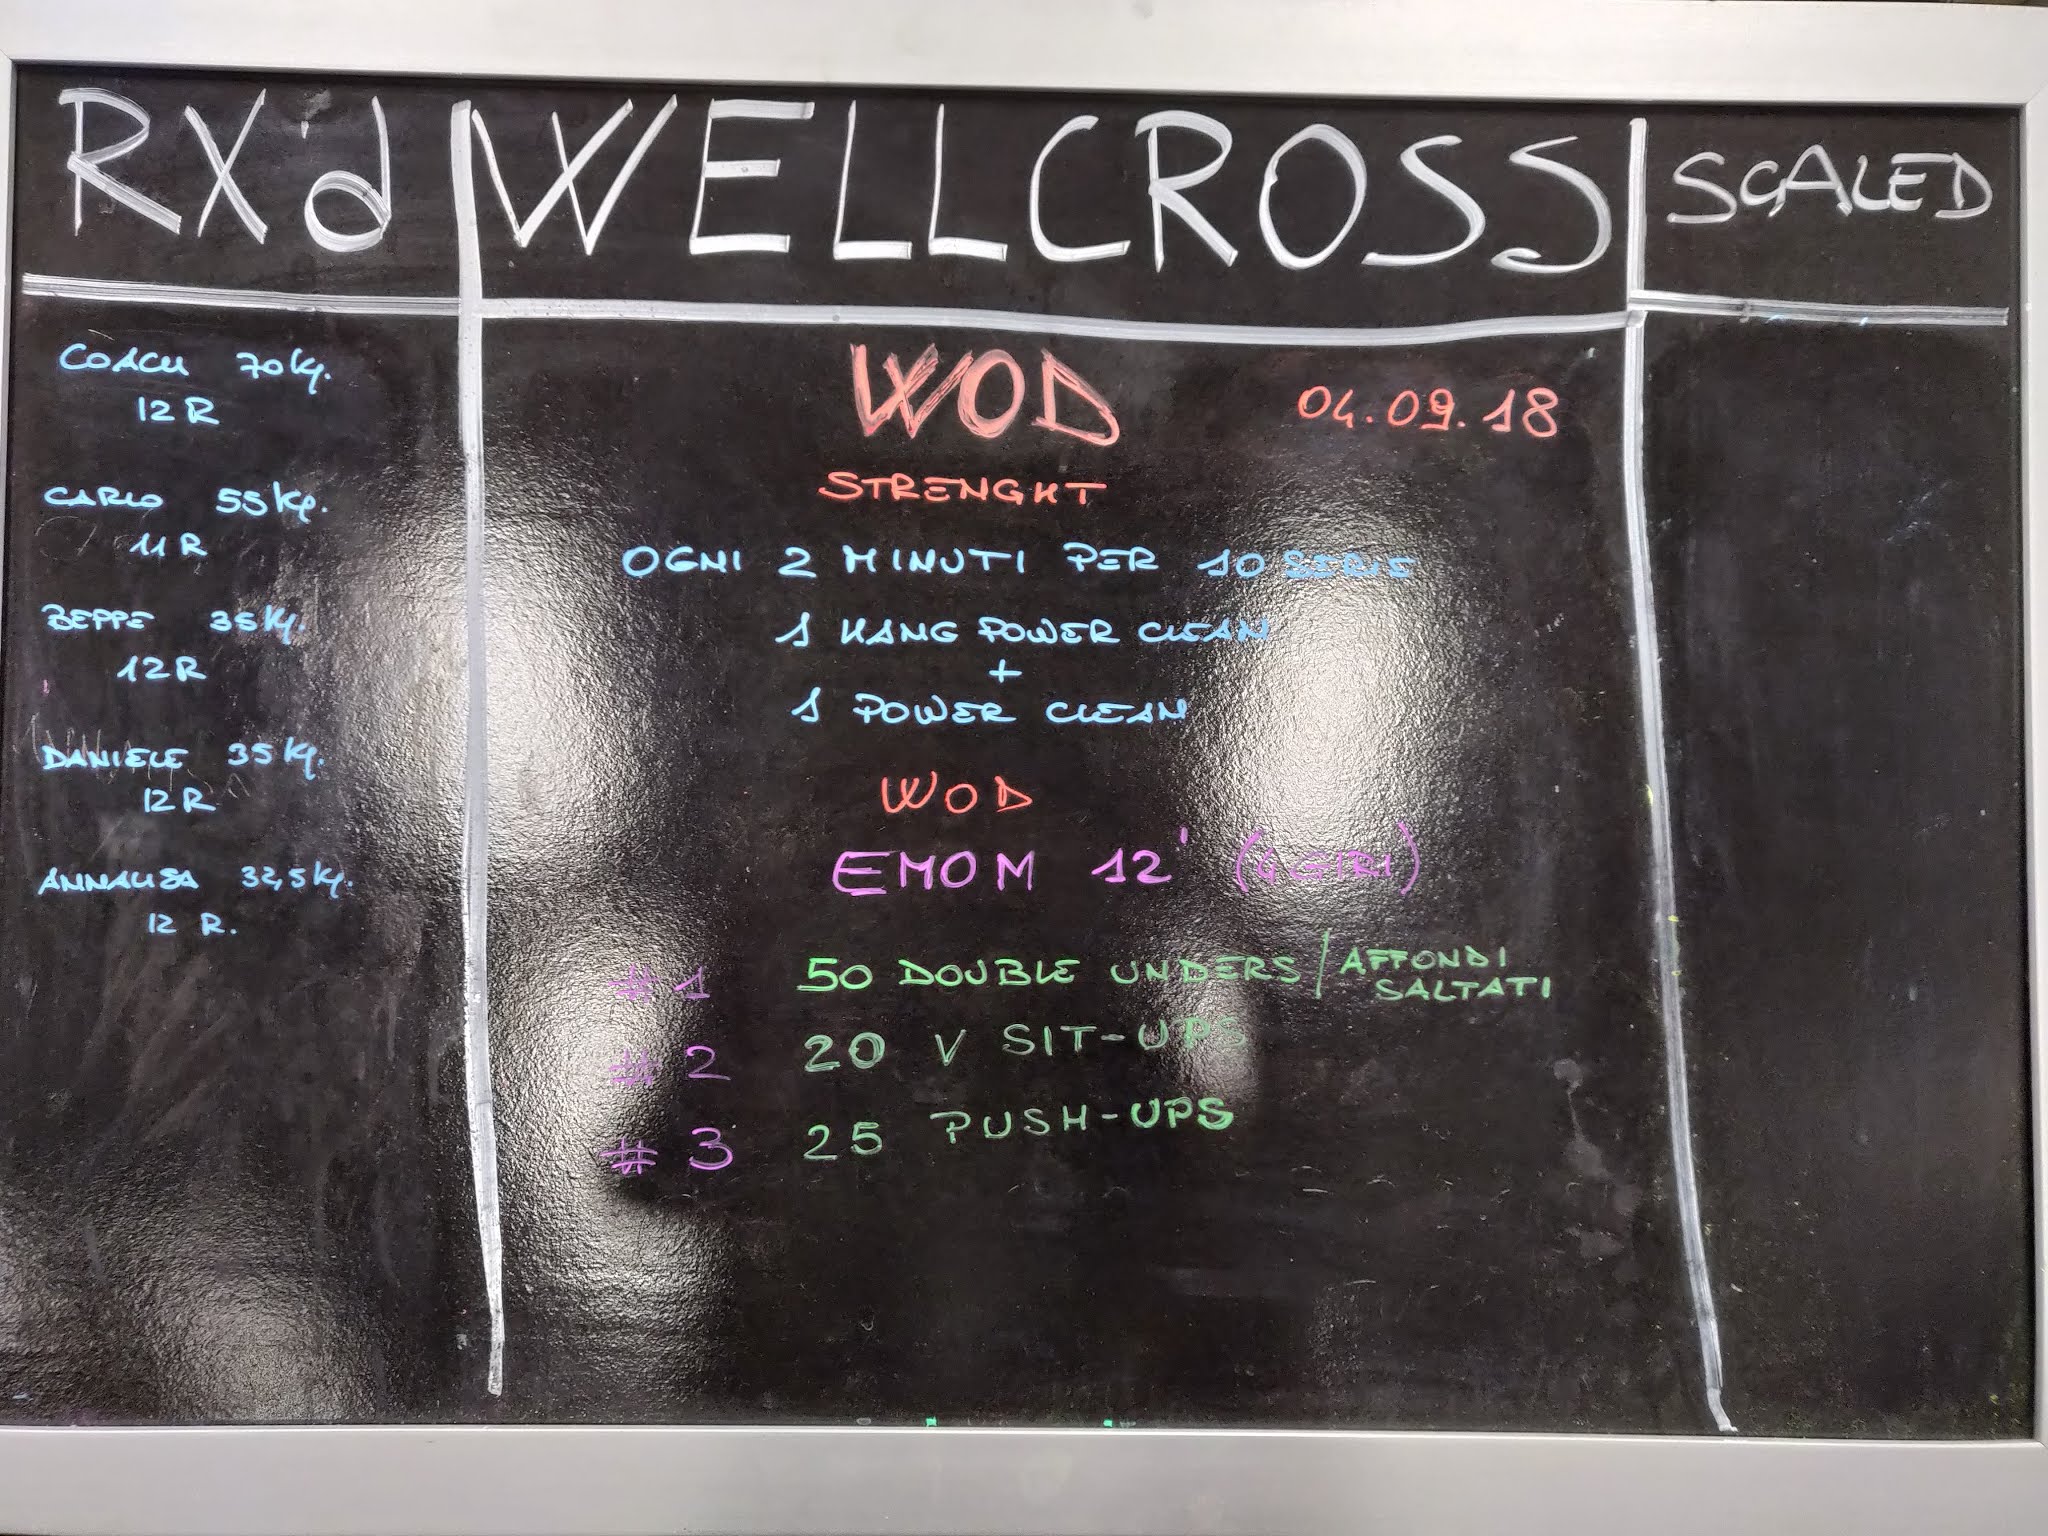 RX'd
WELLCROSS
SCALED
COACH 70Kg.
12 R
CARLO 55Kg.
11 R
BEPPE 35Kg.
12 R
DANIELE 35Kg.
12 R
ANNALISA 32,5Kg.
12 R.
WOD 04.09.18
STRENGHT
OGNI 2 MINUTI PER 10 SERIE
1 HANG POWER CLEAN
+
1 POWER CLEAN
WOD
EMOM 12' (4 GIRI)
#1 50 DOUBLE UNDERS / AFFONDI
SALTATI
#2 20 V SIT-UPS
#3 25 PUSH-UPS